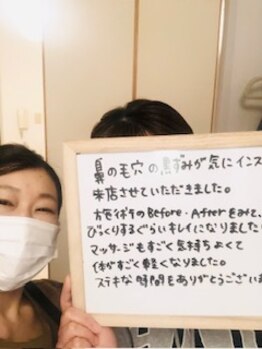 鼻の毛穴の黒ずみが気にインス
来店させていただきました。
施術のBefore・Afterをみて、
びっくりするぐらいキレイになりました
マッサージもすごく気持ちよくて
体がすごく軽くなりました。
ステキな時間をありがとうござい